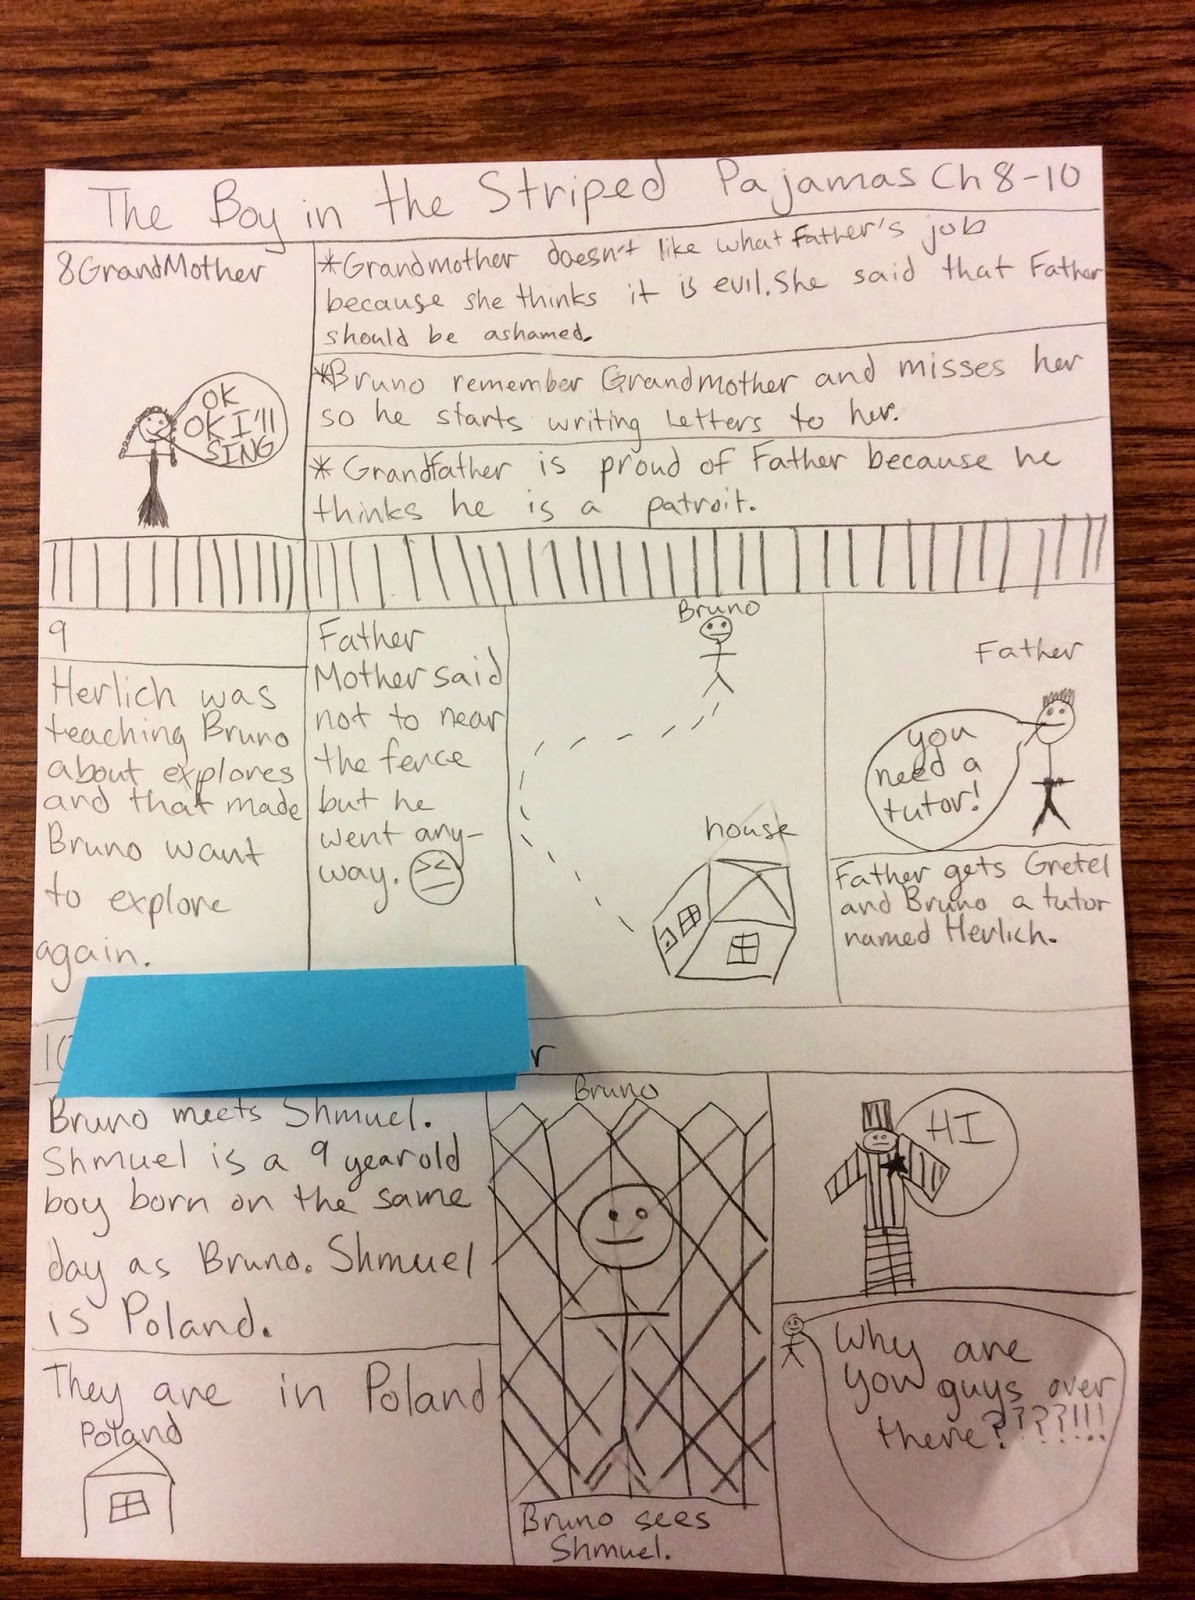 The Boy in the Striped Pajamas Ch 8-10
8 GrandMother
OK
OK I'll
SING
*Grandmother doesn't like what Father's job
because she thinks it is evil. She said that Father
should be ashamed.
*Bruno remember Grandmother and misses her
so he starts writing letters to her.
* Grandfather is proud of Father because he
thinks he is a patroit.
9
Herlich was
teaching Bruno
about explores
and that made
Bruno want
to explore
again.
Father
Mother said
not to near
the fence
but he
went any-
way.
Bruno
house
Father
you
need a
tutor!
Father gets Gretel
and Bruno a tutor
named Herlich.
10
r
Bruno meets Shmuel.
Shmuel is a 9 year old
boy born on the same
day as Bruno. Shmuel
is Poland.
They are in Poland
Poland
Bruno
Bruno sees
Shmuel.
HI
Why are
you guys over
there?????!!!